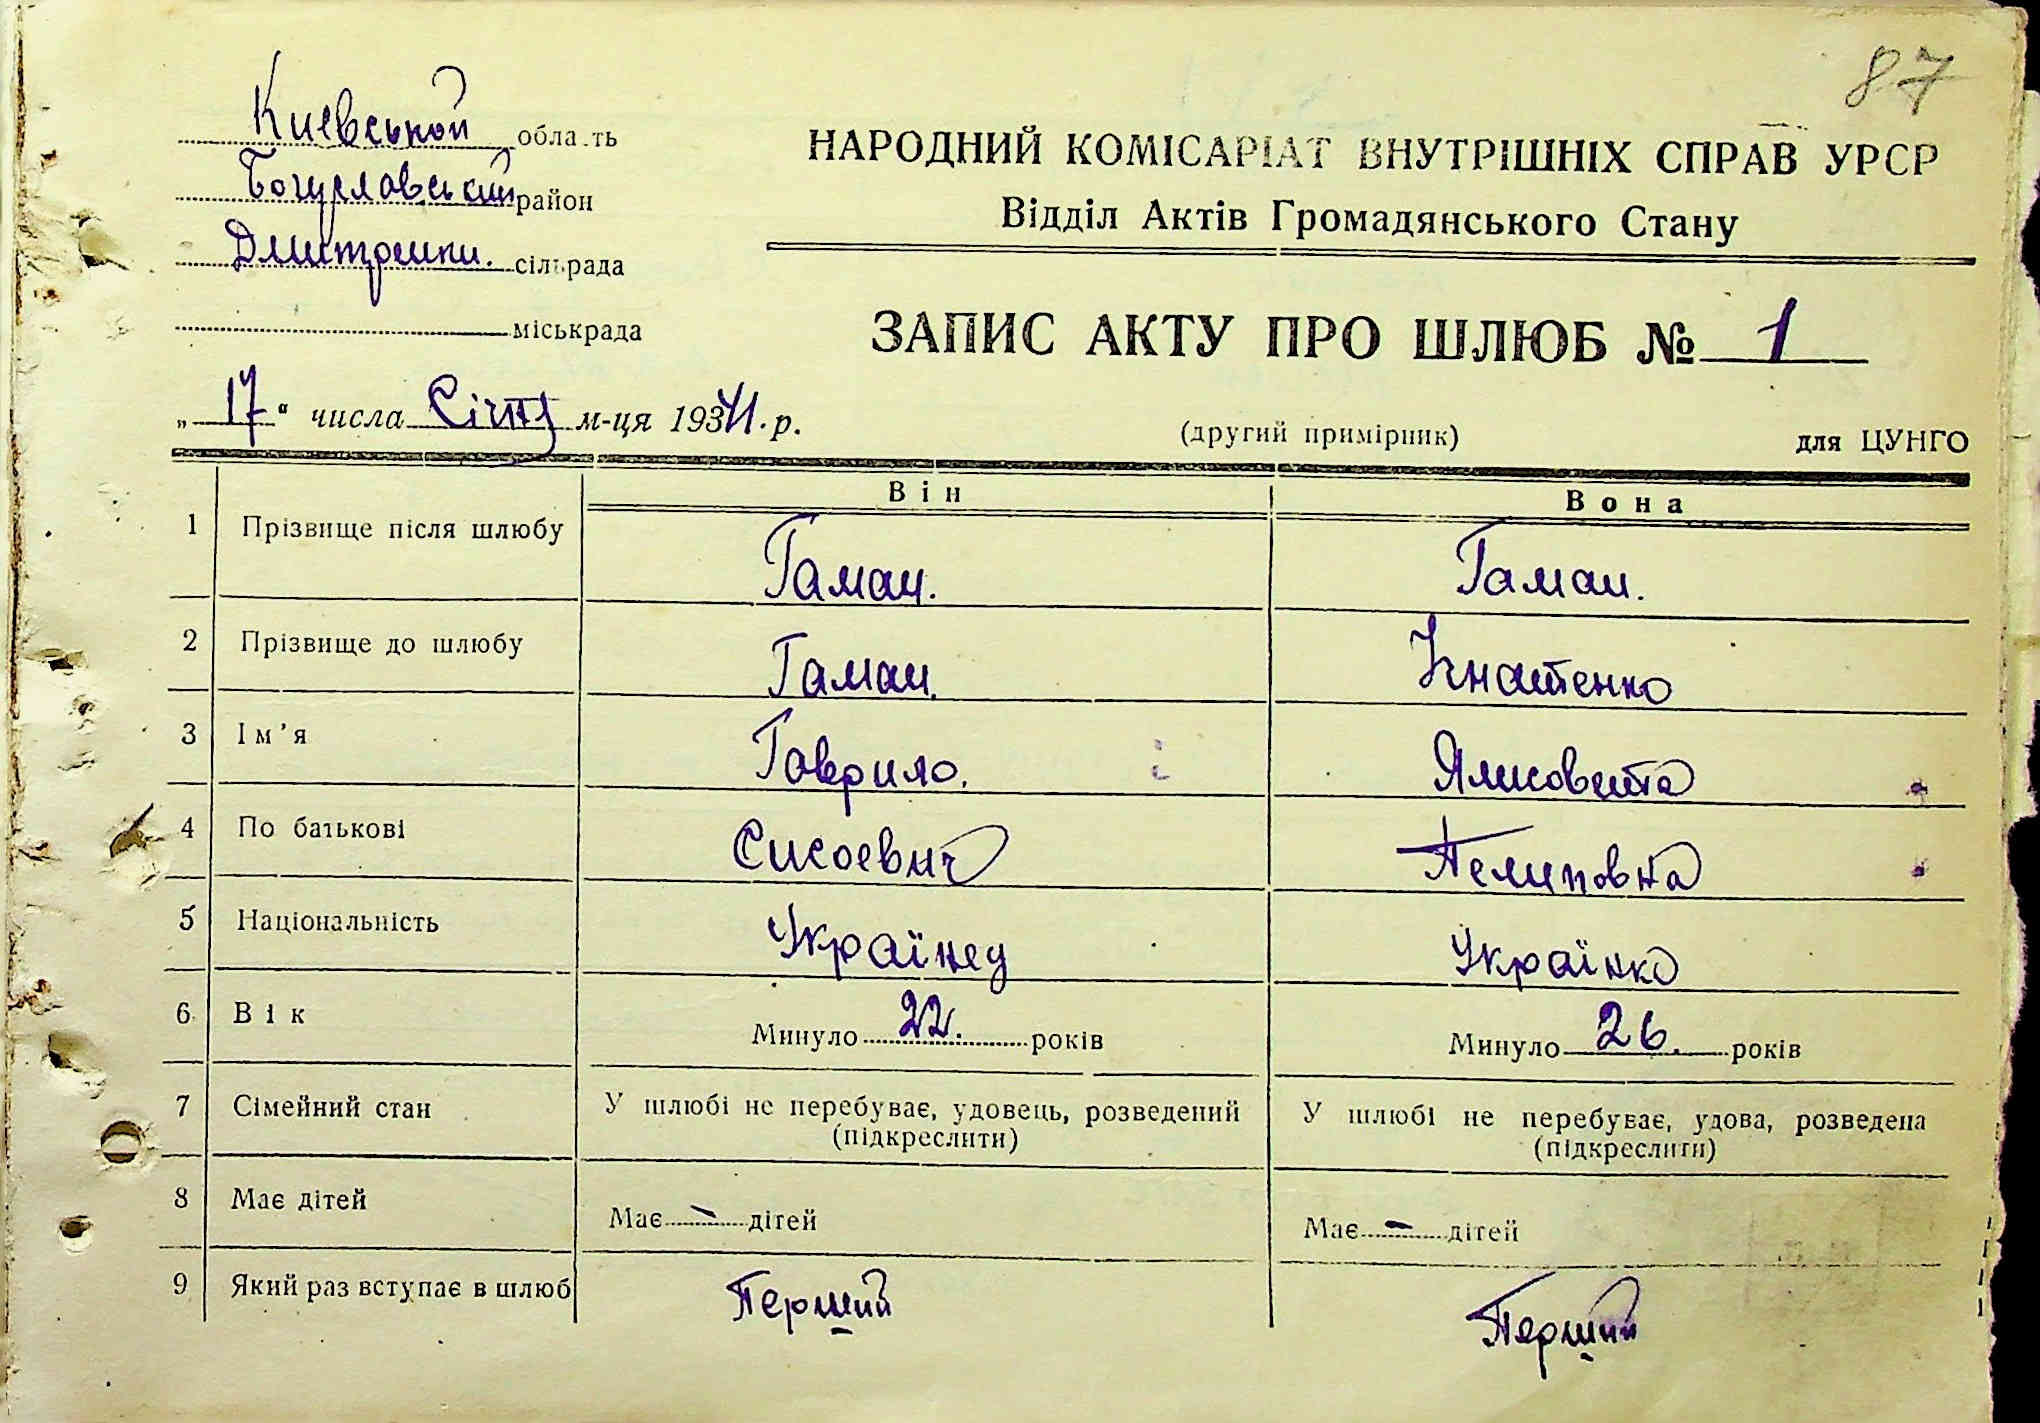 87
Киевськой область
Богуславський район
Дмитренки. сільрада
міськрада
НАРОДНИЙ КОМІСАРІАТ ВНУТРІШНІХ СПРАВ УРСР
Відділ Актів Громадянського Стану
ЗАПИС АКТУ ПРО ШЛЮБ № 1
„17“ числа Січня м-ця 1941.р.
(другий примірник) для ЦУНГО
Він Вона
1 Прізвище після шлюбу Гаман. Гаман.
2 Прізвище до шлюбу Гаман. Ігнатенко
3 Ім'я Гаврило. Ялисовета
4 По батькові Сисоевич Пелиповна
5 Національність Українец Українка
6 Вік Минуло 22. років Минуло 26. років
7 Сімейний стан У шлюбі не перебуває, удовець, розведений У шлюбі не перебуває, удова, розведена
(підкреслити) (підкреслити)
8 Має дітей Має - дітей Має - дітей
9 Який раз вступає в шлюб Перший Перший